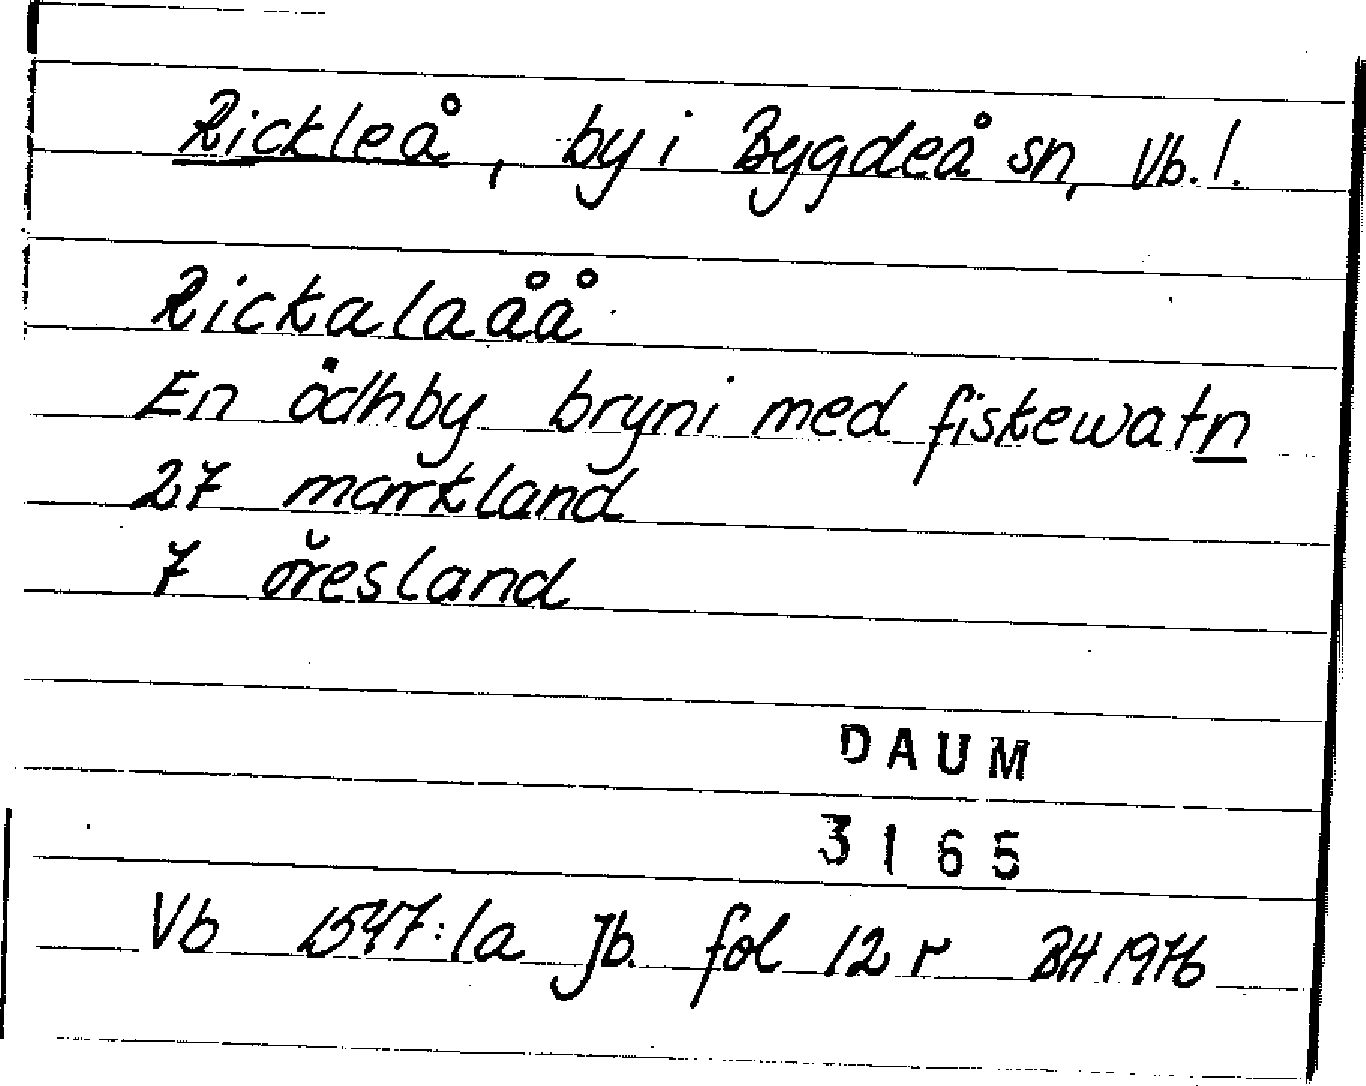 Rickleå, by i Bygdeå sn, Vb. l.
Rickalaåå
En ödhby bryni med fiskewatn
27 markland
7 öresland
DAUM
3165
Vb 1547:1a Jb. fol 12 r BH 1976